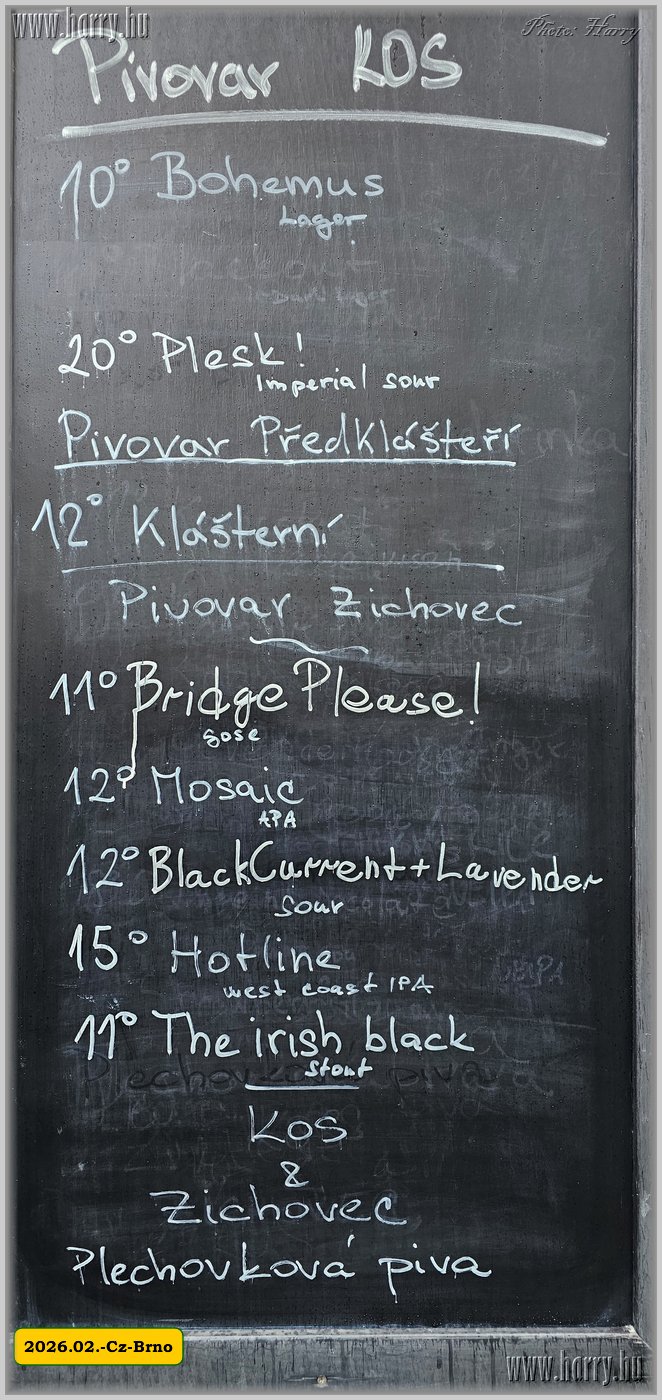 www.harry.hu
Photo: Harry
Pivovar KOS
10° Bohemus
Lager
20° Plesk!
Imperial sour
Pivovar Předklášteří
12° Klášterní
Pivovar Zichovec
11° Bridge Please!
gose
12° Mosaic
APA
12° BlackCurrent+Lavender
Sour
15° Hotline
west coast IPA
11° The irish black
stout
Kos
&
Zichovec
Plechovková piva
2026.02.-Cz-Brno
www.harry.hu